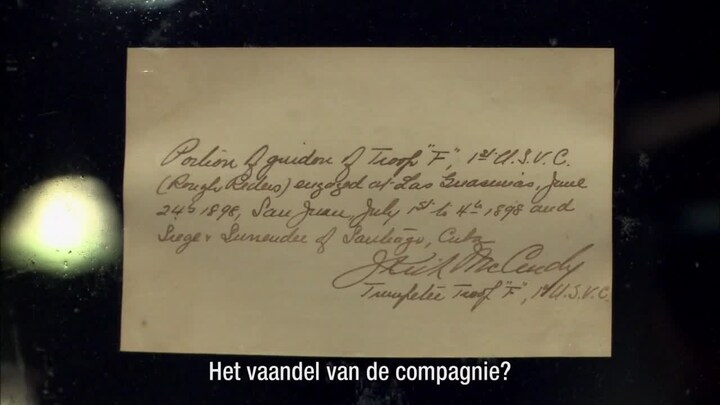 Portion of guidon of Troop "F", 1st U.S.V.C.
(Rough Riders) engaged at Las Guasimas, June
24th 1898, San Juan, July 1st to 4th 1898 and
Siege & Surrender of Santiago, Cuba
J Kirk McCurdy
Trumpeter Troop "F", 1st U.S.V.C.
Het vaandel van de compagnie?